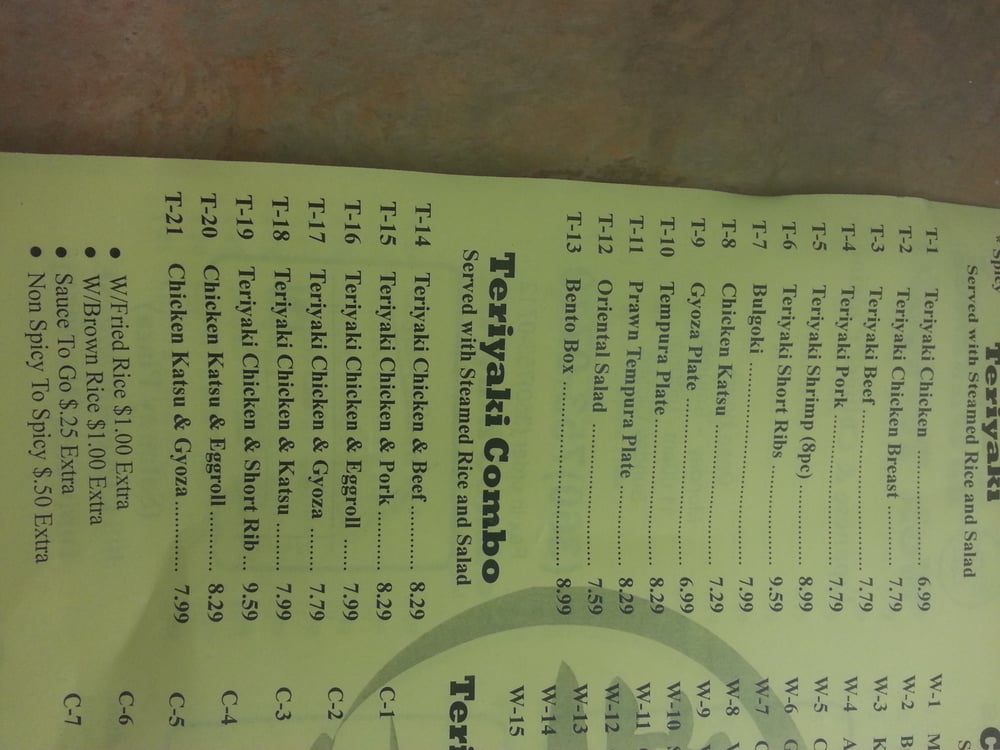 Spicy
Teriyaki
Served with Steamed Rice and Salad
T-1 Teriyaki Chicken ........ 6.99
T-2 Teriyaki Chicken Breast ........ 7.79
T-3 Teriyaki Beef ........ 7.79
T-4 Teriyaki Pork ........ 7.79
T-5 Teriyaki Shrimp (8pc) ........ 8.99
T-6 Teriyaki Short Ribs ........ 9.59
T-7 Bulgoki ........ 7.99
T-8 Chicken Katsu ........ 7.29
T-9 Gyoza Plate ........ 6.99
T-10 Tempura Plate ........ 8.29
T-11 Prawn Tempura Plate ........ 8.29
T-12 Oriental Salad ........ 7.59
T-13 Bento Box ........ 8.99
Teriyaki Combo
Served with Steamed Rice and Salad
T-14 Teriyaki Chicken & Beef ........ 8.29
T-15 Teriyaki Chicken & Pork ........ 8.29
T-16 Teriyaki Chicken & Eggroll ..... 7.99
T-17 Teriyaki Chicken & Gyoza ....... 7.79
T-18 Teriyaki Chicken & Katsu ....... 7.99
T-19 Teriyaki Chicken & Short Rib ... 9.59
T-20 Chicken Katsu & Eggroll ........ 8.29
T-21 Chicken Katsu & Gyoza ........ 7.99
• W/Fried Rice $1.00 Extra
• W/Brown Rice $1.00 Extra
• Sauce To Go $.25 Extra
• Non Spicy To Spicy $.50 Extra
W-1
W-2 B
W-3 K
W-4 A
W-5 C
W-6 G
W-7 C
W-8
W-9
W-10 S
W-11
W-12
W-13
W-14
W-15
Teri
C-1
C-2
C-3
C-4
C-5
C-6
C-7